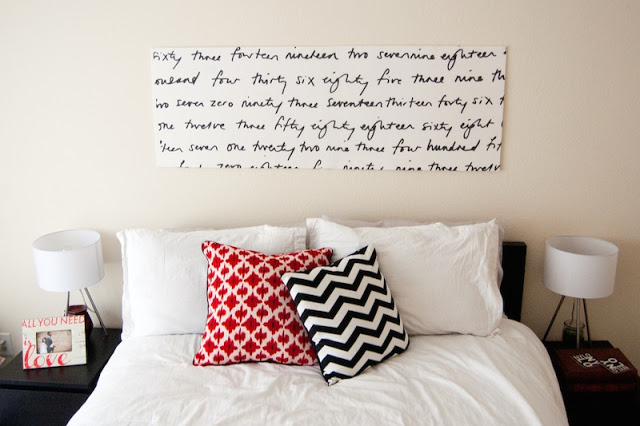 sixty three fourteen nineteen two seven nine eighteen
ousand four thirty six eighty five three nine th
two seven zero ninety three seventeen thirteen forty six t
one twelve three fifty eighty eighteen sixty eight
teen seven one twenty two nine three four hundred fif
zero eighteen five ninety nine three twelve
ALL YOU NEED
is
love